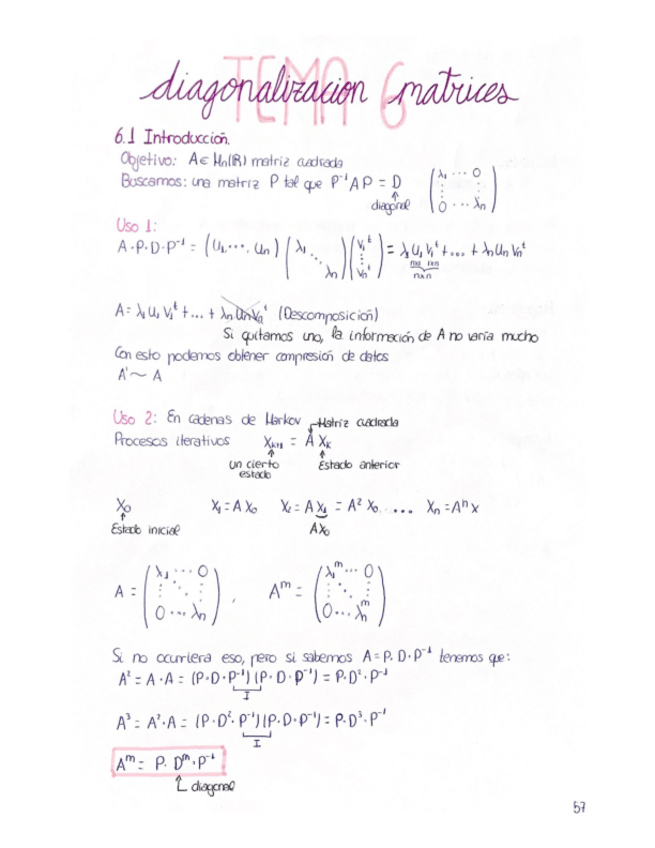 TEMA 6
diagonalizacion matrices
6.1 Introducción.
Objetivo: A ∈ Mn(ℝ) matriz cuadrada
Buscamos: una matriz P tal que P⁻¹AP = D (λ₁ ... 0 ⋮ ⋮ 0 ... λn)
diagonal
Uso 1:
A·P·D·P⁻¹ = (U₁,..., Un) (λ₁ ⋱ λn) (V₁ᵗ ⋮ Vnᵗ) = λ₁U₁V₁ᵗ + ... + λnUnVnᵗ
nxn
A = λ₁U₁V₁ᵗ + ... + λnUnVnᵗ (Descomposición)
Si quitamos uno, la información de A no varía mucho
Con esto podemos obtener compresión de datos
A' ~ A
Uso 2: En cadenas de Markov Matriz cuadrada
Procesos iterativos Xₖ₊₁ = A Xₖ
un cierto estado Estado anterior
X₀ X₁ = A X₀ X₂ = A X₁ = A² X₀ .... Xn = Aⁿ x
Estado inicial AX₀
A = (λ₁ ... 0 ⋮ ⋱ ⋮ 0 ... λn), Aᵐ = (λ₁ᵐ ... 0 ⋮ ⋱ ⋮ 0 ... λnᵐ)
Si no ocurriera eso, pero si sabemos A = P·D·P⁻¹ tenemos que:
A² = A·A = (P·D·P⁻¹)(P·D·P⁻¹) = P·D²·P⁻¹
I
A³ = A²·A = (P·D²·P⁻¹)(P·D·P⁻¹) = P·D³·P⁻¹
I
Aᵐ = P·Dᵐ·P⁻¹
diagonal
57